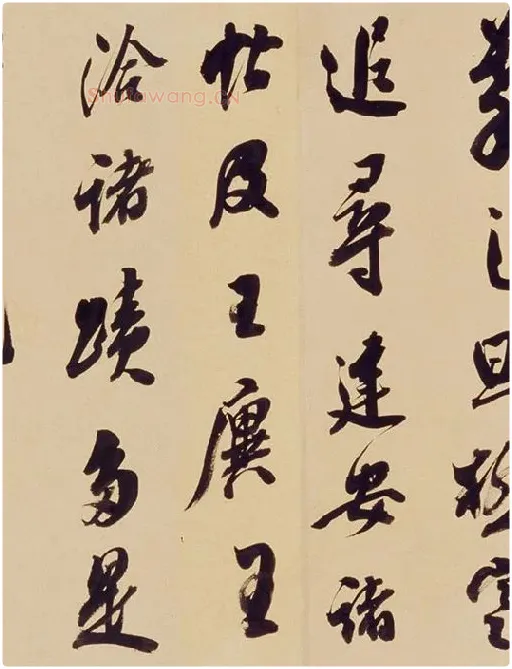 追尋建安諸
帖及王廙王
洽諸蹟多是
Shufawang.CN